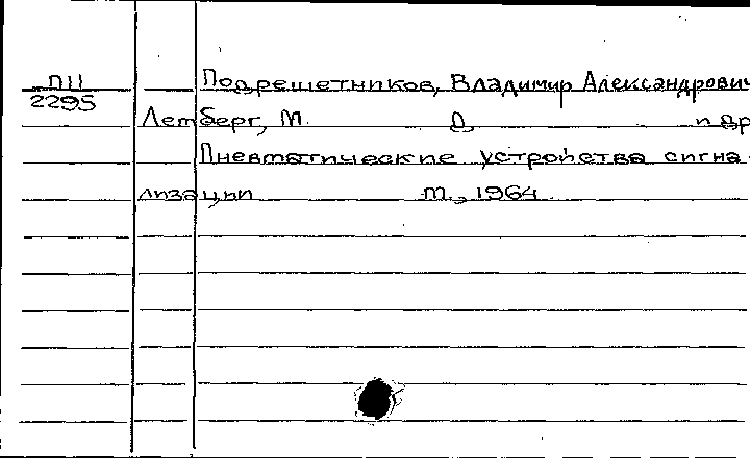 П11
2295
Подрешетников, Владимир Александрович
Летберг, М. Д. и др
Пневматические устройства сигна
лизации М., 1964